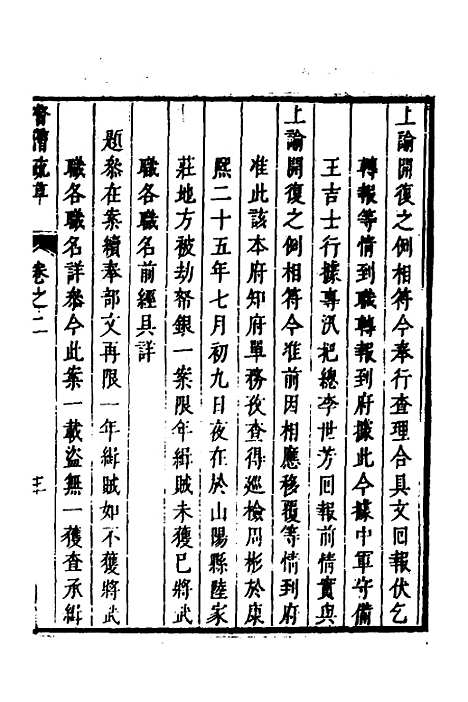 上諭開復之例相符今奉行查理合具文回報伏乞
轉報等情到職轉報到府據此今據中軍守備
王吉士行據專汛把總李世芳回報前情實與
上諭開復之例相符今准前因相應移覆等情到府
准此該本府知府單務孜查得巡檢周彬於康
熙二十五年七月初九日夜在於山陽縣陸家
莊地方被劫帑銀一案限年緝賊未獲已將武
職各職名前經具詳
題參在案續奉部文再限一年緝賊如不獲將武
職各職名詳參今此案一載盜無一獲查承緝
督漕疏草
卷之二